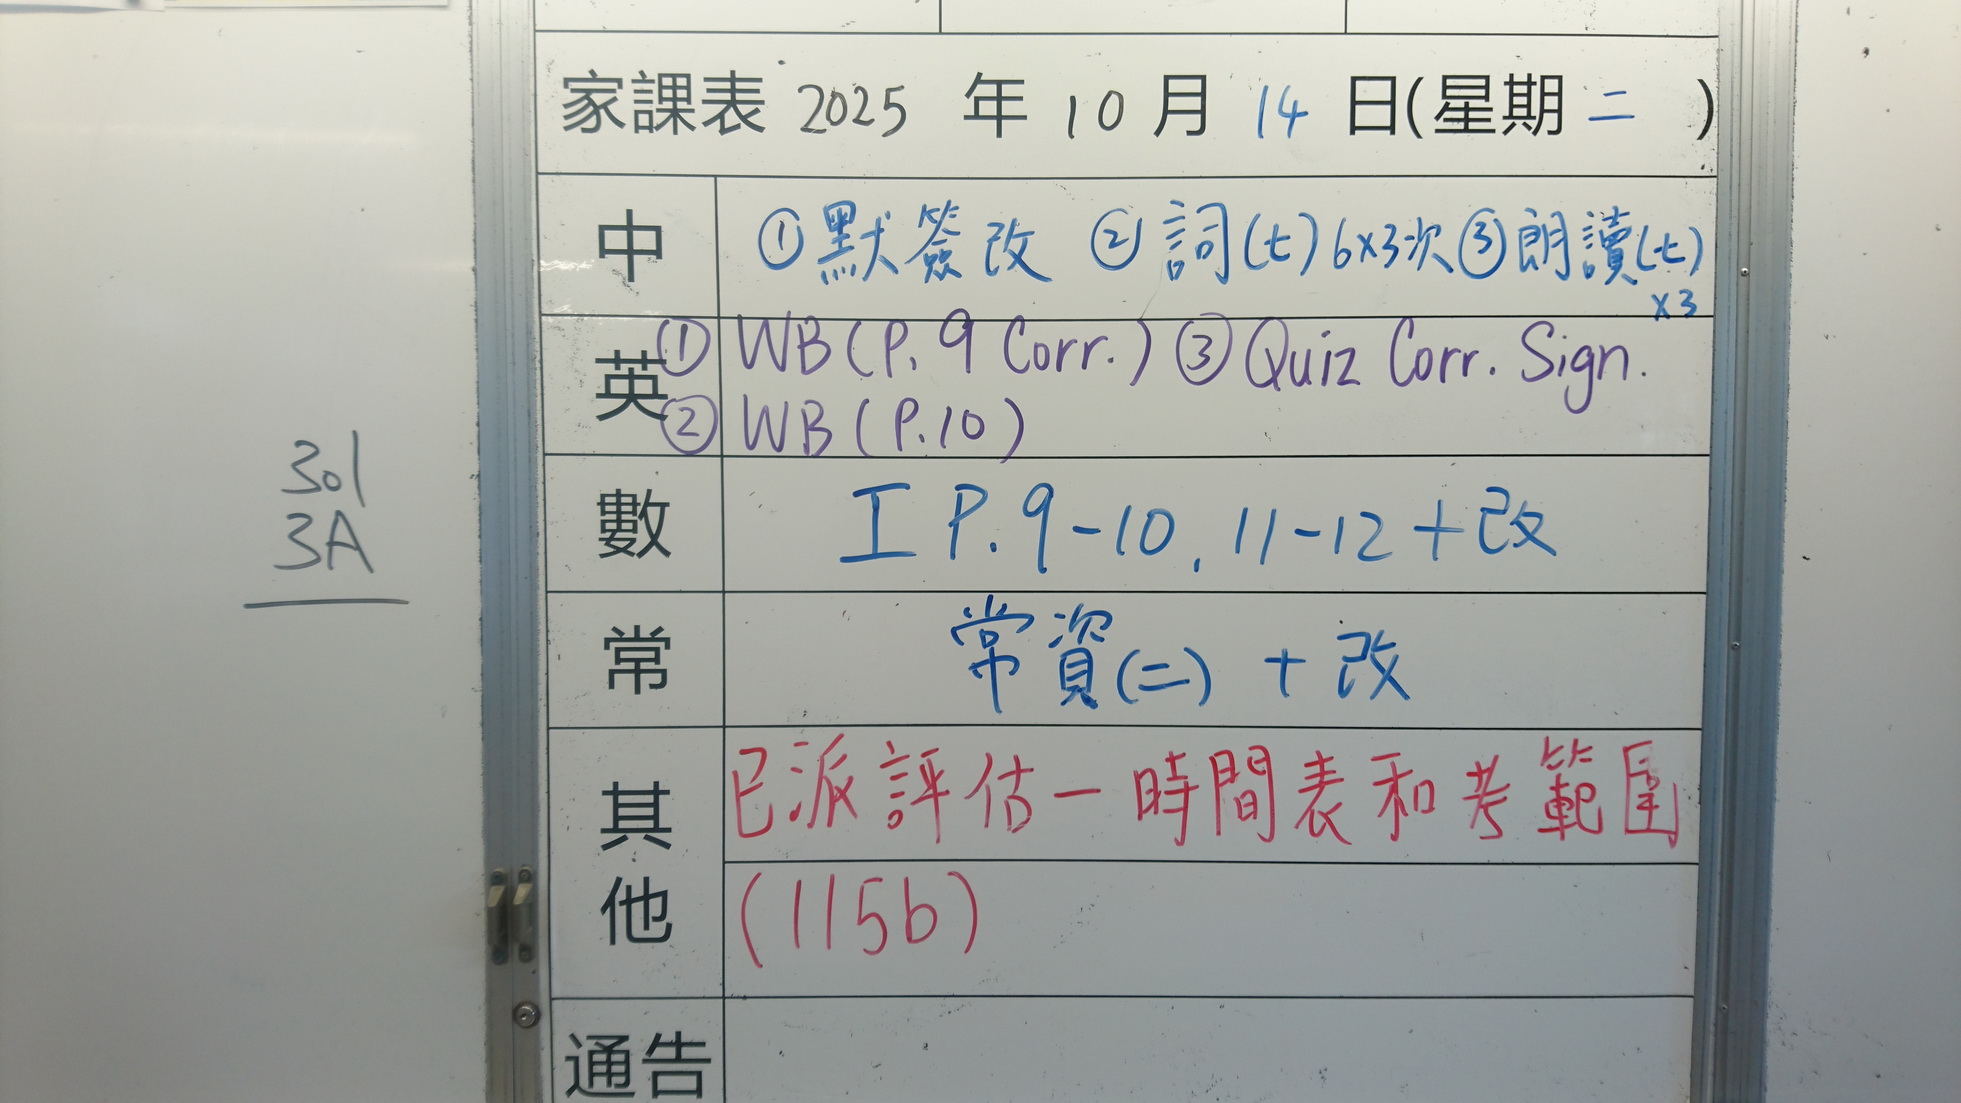 家課表 2025 年 10 月 14 日(星期 二 )
中 ①默簽改 ②詞(七)6x3次③朗讀(七)
x3
英 ① WB(P.9 Corr.) ③ Quiz Corr. Sign.
② WB(P.10)
301
3A
數 工 P.9-10, 11-12+改
常 常資(二) + 改
其他 已派評估一時間表和考範圍
(115b)
通告